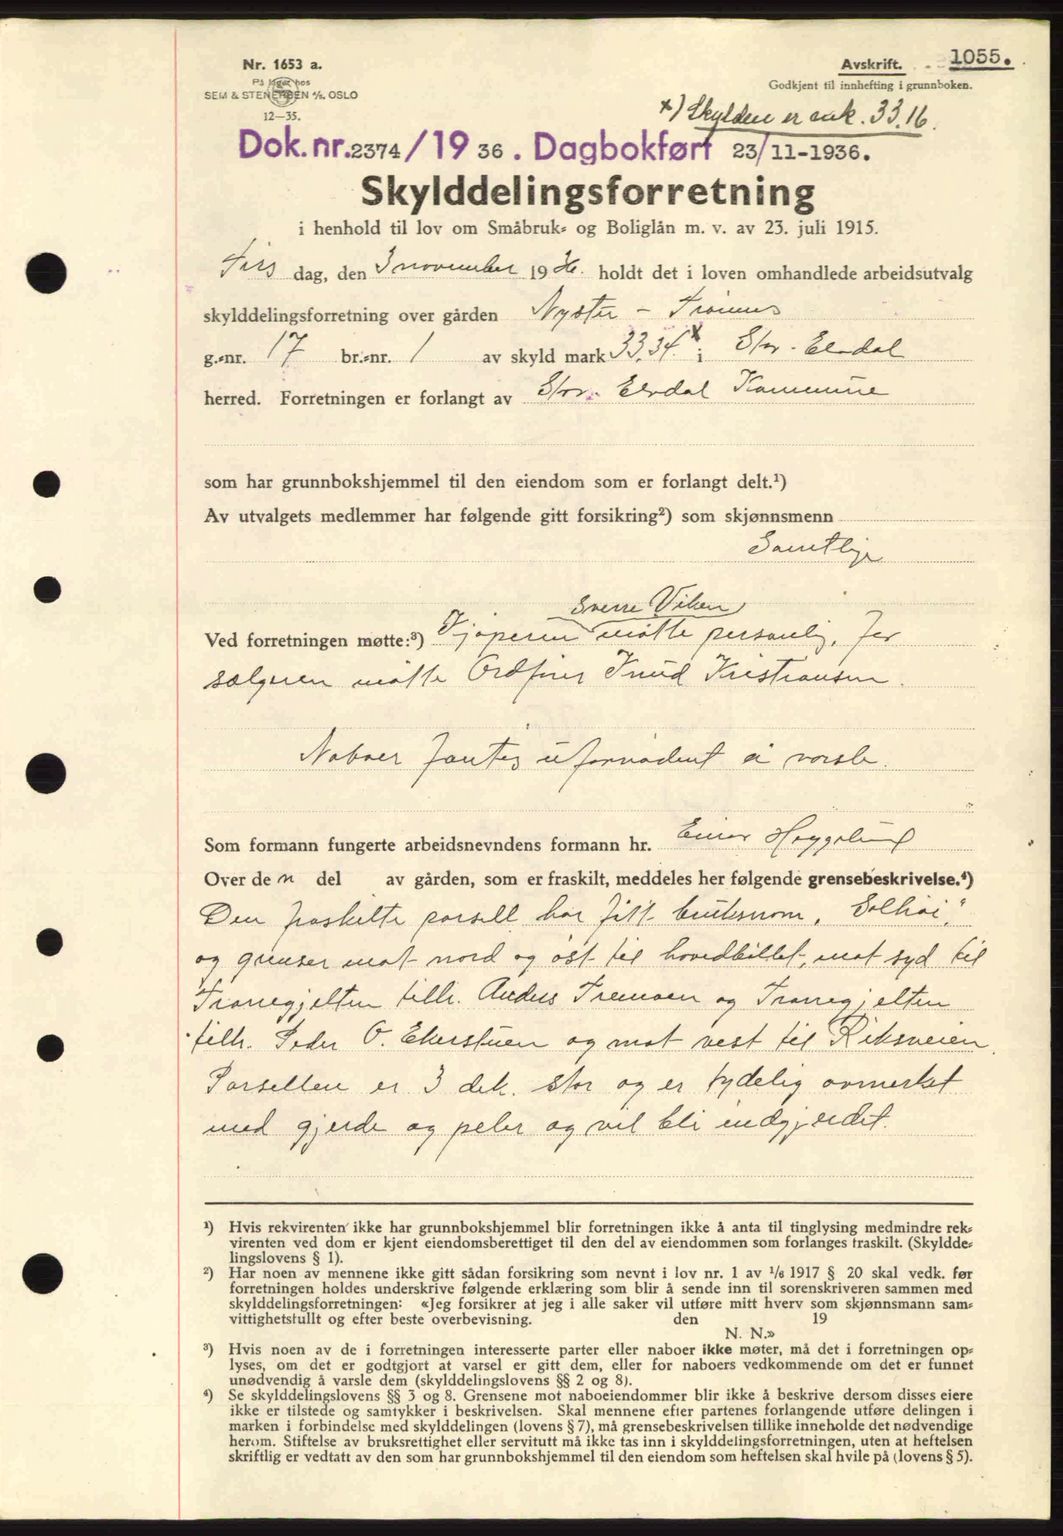 Nr. 1653 a.
På lager hos
SEM & STENERSEN A/S. OSLO
12—35.
Avskrift. 1055.
Godkjent til innhefting i grunnboken.
x) Skylden er mk. 33.16.
Dok. nr. 2374/19 36. Dagbokført 23/11-1936.
Skylddelingsforretning
i henhold til lov om Småbruk- og Boliglån m. v. av 23. juli 1915.
Tirs dag, den 3 november 19 36. holdt det i loven omhandlede arbeidsutvalg
skylddelingsforretning over gården Nystu - Trønnes
g.-nr. 17 br.-nr. 1 av skyld mark 33.34 x i Stor-Elvdal
herred. Forretningen er forlangt av Stor-Elvdal Kommune
som har grunnbokshjemmel til den eiendom som er forlangt delt.¹)
Av utvalgets medlemmer har følgende gitt forsikring²) som skjønnsmenn
Samtlige
Sverre Viken
Ved forretningen møtte:³) Kjøperen møtte personlig, for
sælgeren møtte Ordfører Knud Kristiansen.
Naboer fantes ufornødent å varsle.
Som formann fungerte arbeidsnevndens formann hr. Einar
Over de n del av gården, som er fraskilt, meddeles her følgende grensebeskrivelse.⁴)
Den fraskilte parsell har fått bruksnavn „Solhøi,"
og grenser mot nord og øst til hovedbøllet, mot syd til
Tronegjelten tilh. Anders Tremoen og Tronegjelten
tilh. Peder O. Ekerstuen og mot vest til Riksveien.
Parsellen er 3 dek. stor og er tydelig avmerket
med gjerde og peler og vil bli indgjerdet.
¹) Hvis rekvirenten ikke har grunnbokshjemmel blir forretningen ikke å anta til tinglysing medmindre rek-
virenten ved dom er kjent eiendomsberettiget til den del av eiendommen som forlanges fraskilt. (Skyldde-
lingslovens § 1).
²) Har noen av mennene ikke gitt sådan forsikring som nevnt i lov nr. 1 av 1/6 1917 § 20 skal vedk. før
forretningen holdes underskrive følgende erklæring som blir å sende inn til sorenskriveren sammen med
skylddelingsforretningen: «Jeg forsikrer at jeg i alle saker vil utføre mitt hverv som skjønnsmann sam-
vittighetsfullt og efter beste overbevisning. den 19
N. N.»
³) Hvis noen av de i forretningen interesserte parter eller naboer ikke møter, må det i forretningen op-
lyses, om det er godtgjort at varsel er gitt dem, eller for naboers vedkommende om det er funnet
unødvendig å varsle dem (skylddelingslovens §§ 2 og 8).
⁴) Se skylddelingslovens §§ 3 og 8. Grensene mot naboeiendommer blir ikke å beskrive dersom disses eiere
ikke er tilstede og samtykker i beskrivelsen. Skal mennene efter partenes forlangende utføre delingen i
marken i forbindelse med skylddelingen (lovens § 7), må grensebeskrivelsen tillike inneholde det nødvendige
herom. Stiftelse av bruksrettighet eller servitutt må ikke tas inn i skylddelingsforretningen, uten at heftelsen
skriftlig er vedtatt av den som har grunnbokshjemmel til den eiendom som heftelsen skal hvile på (lovens § 5).